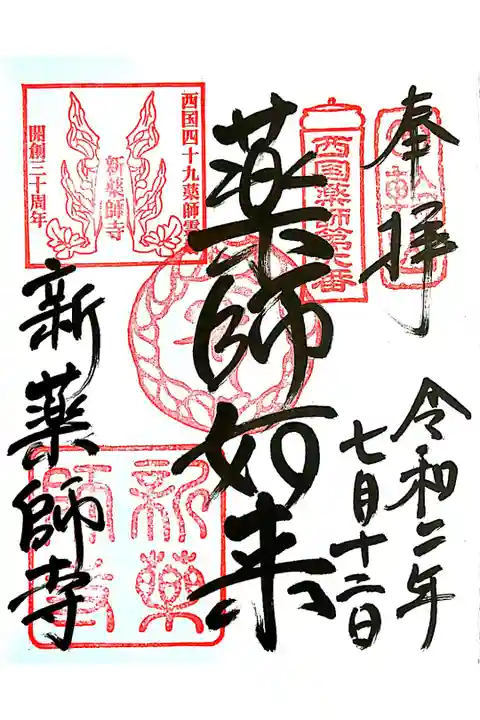 奉拝
令和二年
七月十二日
西国薬師第六番
薬師如来
西国四十九薬師霊
新薬師寺
開創三十周年
新薬師寺
新薬
師寺